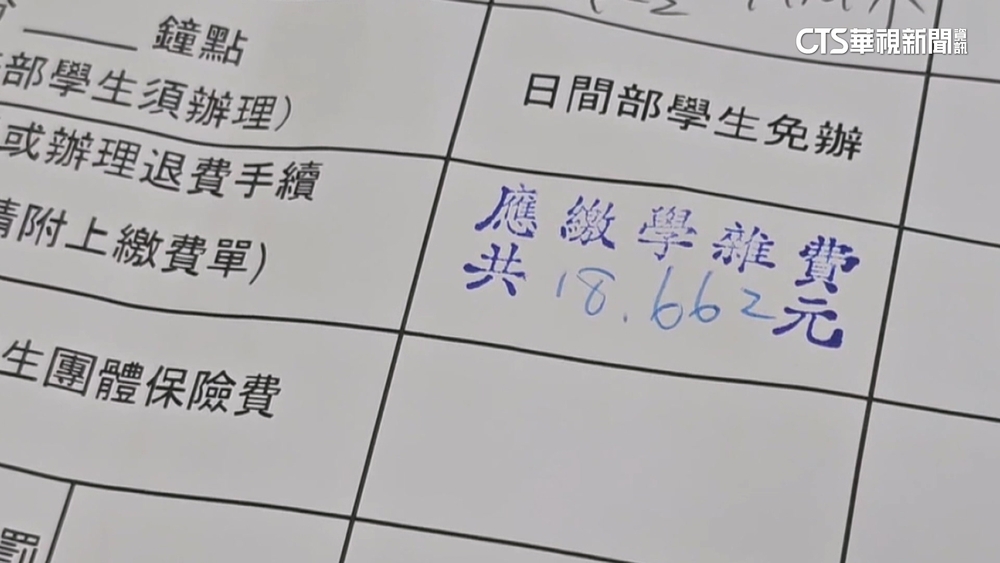 CTS華視新聞資訊
鐘點
部學生須辦理)
日間部學生免辦
或辦理退費手續
請附上繳費單)
應繳學雜費
共18.662元
生團體保險費
罰